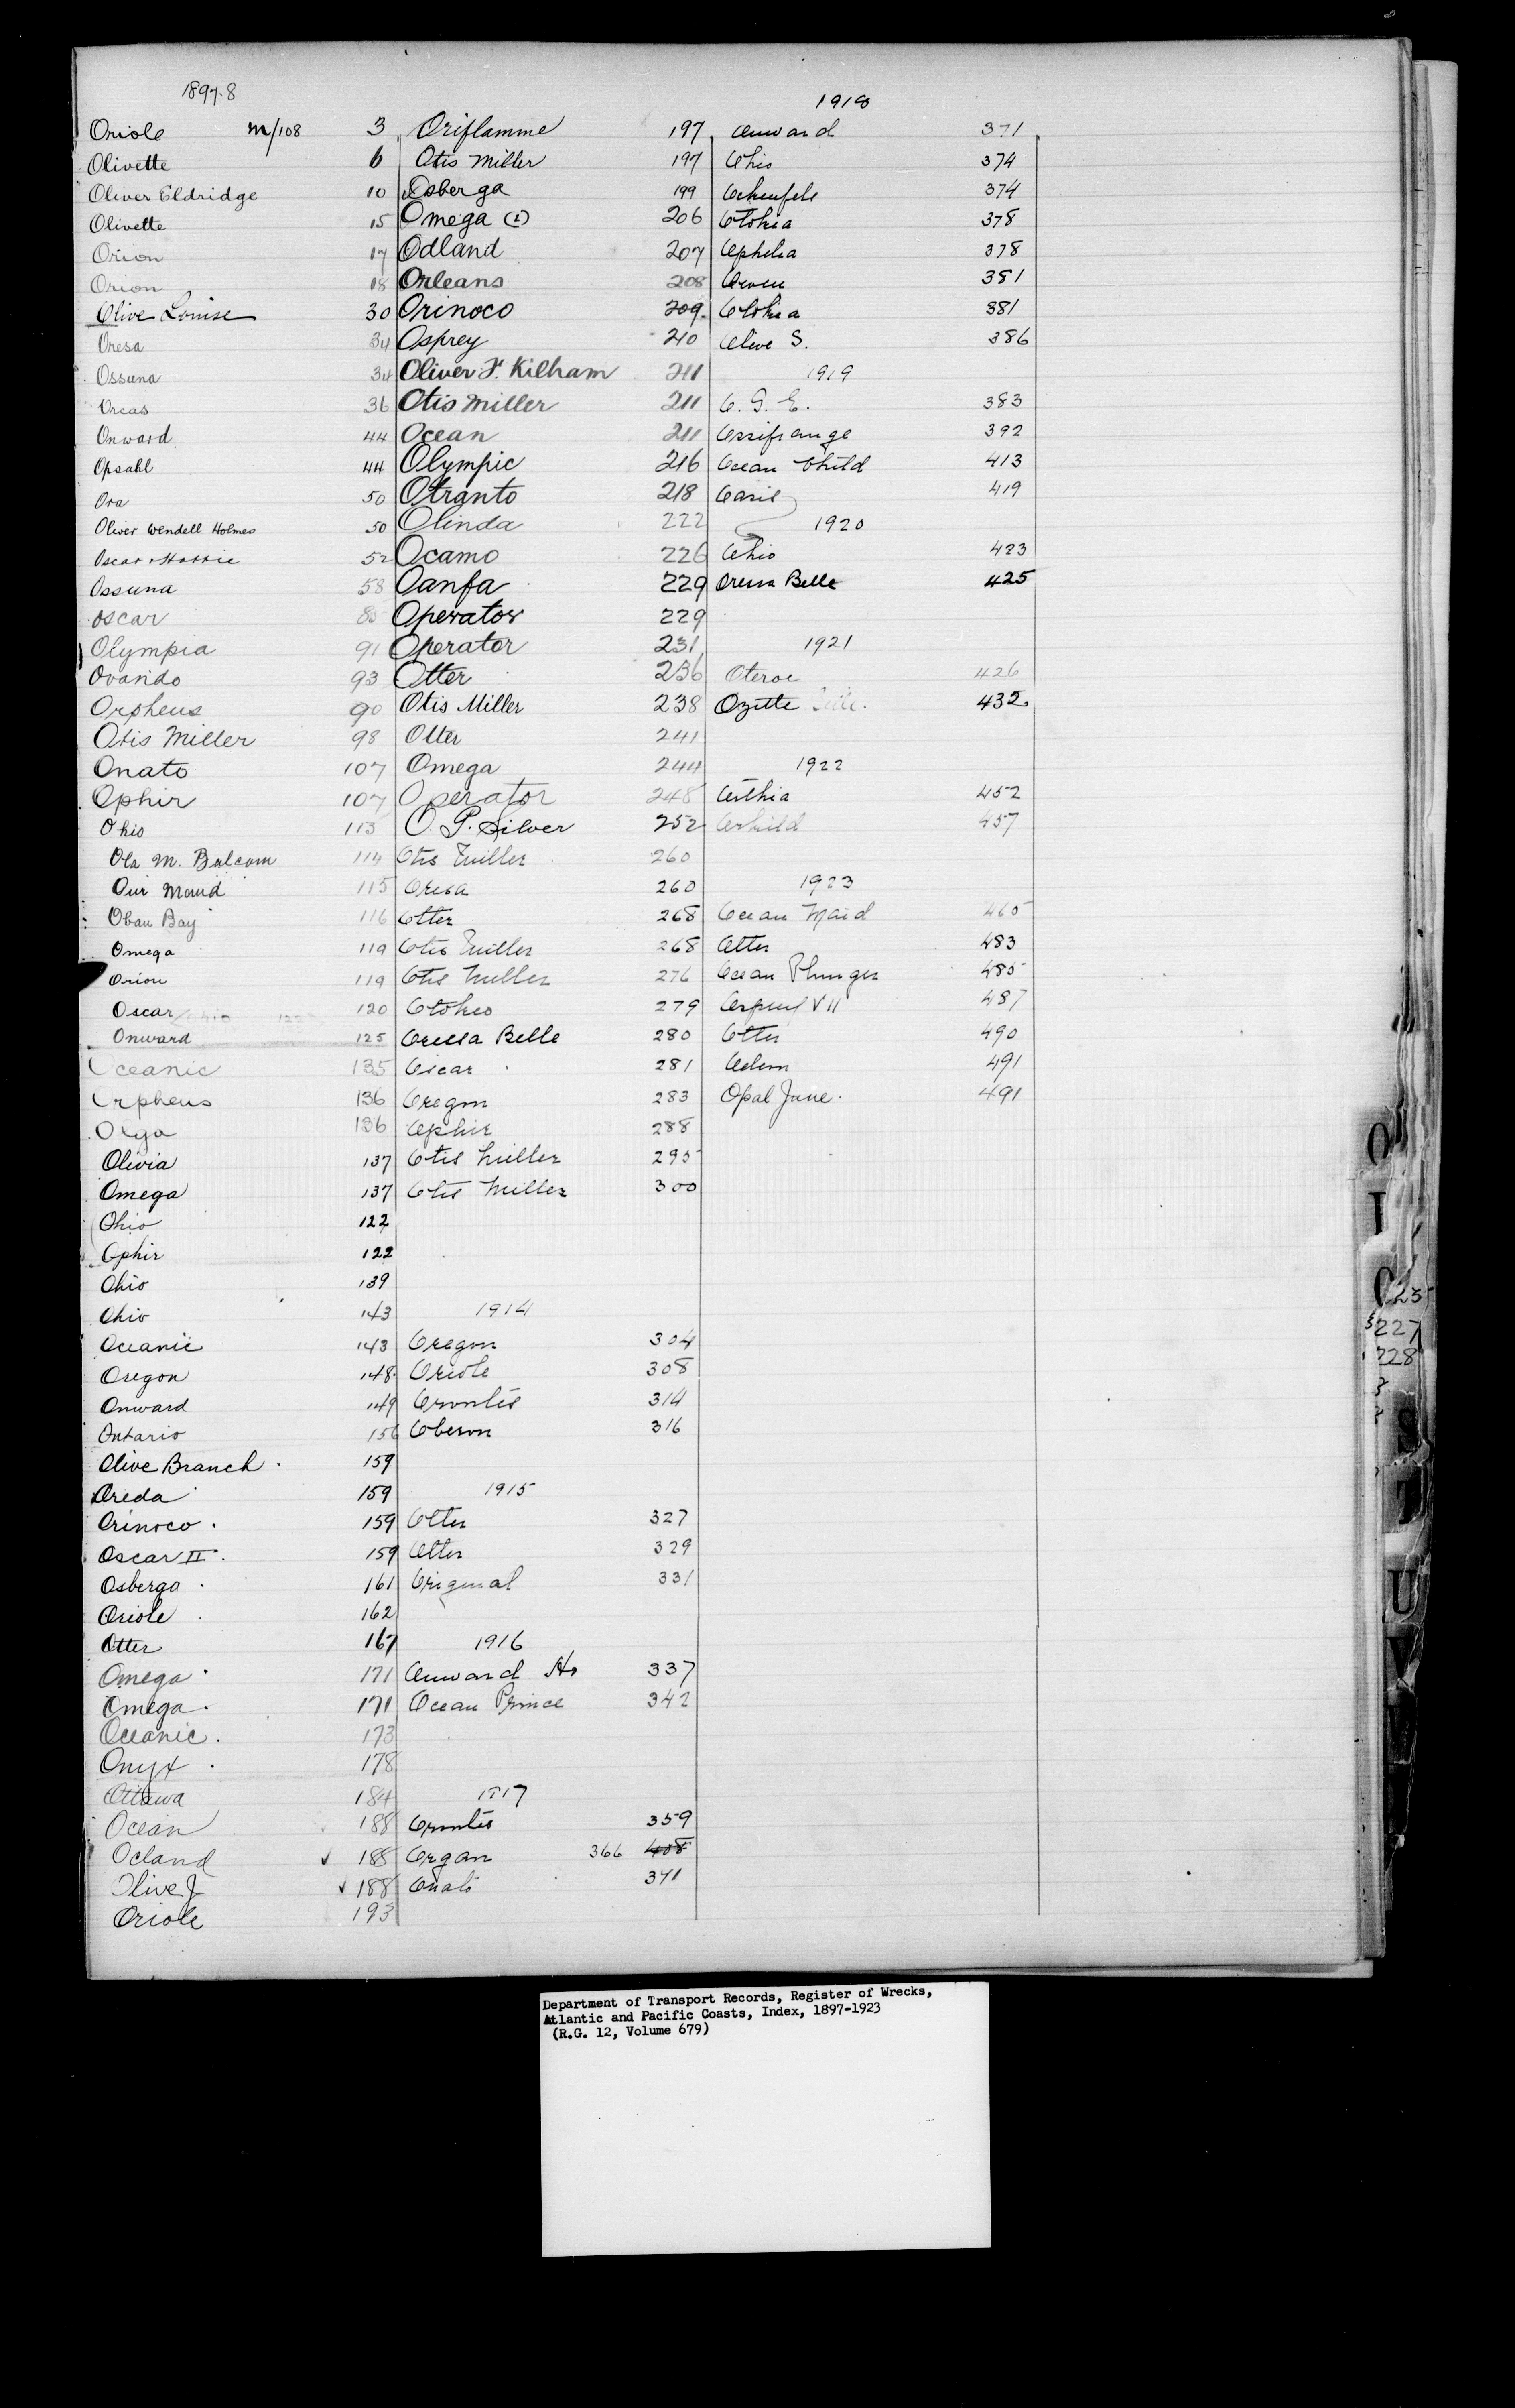 1897-8
Oriole m/108 3
Olivette 6
Oliver Eldridge 10
Olivette 15
Orion 17
Orion 18
Olive Louise 30
Oresa 34
Ossuna 34
Orcas 36
Onward 44
Opsahl 44
Ora 50
Oliver Wendell Holmes 50
Oscar & Hattie 52
Ossuna 58
Oscar 85
Olympia 91
Ovando 93
Orpheus 90
Otis Miller 98
Onato 107
Ophir 107
Ohio 113
Ola M. Balcom 114
Our Maud 115
Oban Bay 116
Omega 119
Orion 119
Oscar 120
Onward 125
Oceanic 135
Orpheus 136
Olga 136
Olivia 137
Omega 137
Ohio 122
Ophir 122
Ohio 139
Ohio 143
Oceanic 143
Oregon 148
Onward 149
Ontario 156
Olive Branch 159
Oreda 159
Orinoco 159
Oscar II 159
Osberga 161
Oriole 162
Otter 167
Omega 171
Omega 171
Oceanic 173
Onyx 178
Ottawa 184
Ocean 188
Ocland ✓ 188
Olive J ✓ 188
Oriole 193
Oriflamme 197
Otis Miller 197
Osberga 199
Omega (1) 206
Odland 207
Orleans 208
Orinoco 209
Osprey 210
Oliver F. Kilham 211
Otis Miller 211
Ocean 211
Olympic 216
Otranto 218
Olinda 222
Ocamo 226
Oanfa 229
Operator 229
Operator 231
Otter 236
Otis Miller 238
Otter 241
Omega 244
Operator 248
O. P. Silver 252
Otis Miller 260
Oresa 260
Otter 268
Otis Miller 268
Otis Miller 276
Otokeo 279
Oressa Belle 280
Oscar 281
Oregon 283
Ophir 288
Otis Miller 295
Otis Miller 300
1914
Oregon 304
Oriole 308
Orontes 314
Oberon 316
1915
Otter 327
Otter 329
Original 331
1916
Onward Ho 337
Ocean Prince 342
1917
Orontes 359
Organ 366 408
Onato 371
1918
Onward 371
Ohio 374
374
Otokia 378
Ophelia 378
381
Otokia 381
Olive S. 386
1919
O. G. E. 383
Ossifrange 392
Ocean Child 413
Oasis 419
1920
Ohio 423
Oressa Belle 425
1921
Oteroe 426
Ozette 432
1922
452
457
1923
Ocean Maid 465
Otter 483
Ocean Plunger 485
VII 487
Otter 490
491
Opal June 491
O
I
O
235
227
228
S
T
U
V
Department of Transport Records, Register of Wrecks,
Atlantic and Pacific Coasts, Index, 1897-1923
(R.G. 12, Volume 679)